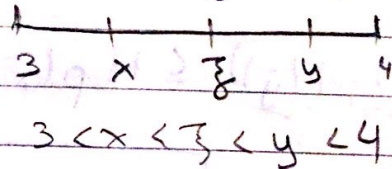 3 x ξ y 4
3 < x < ξ < y < 4